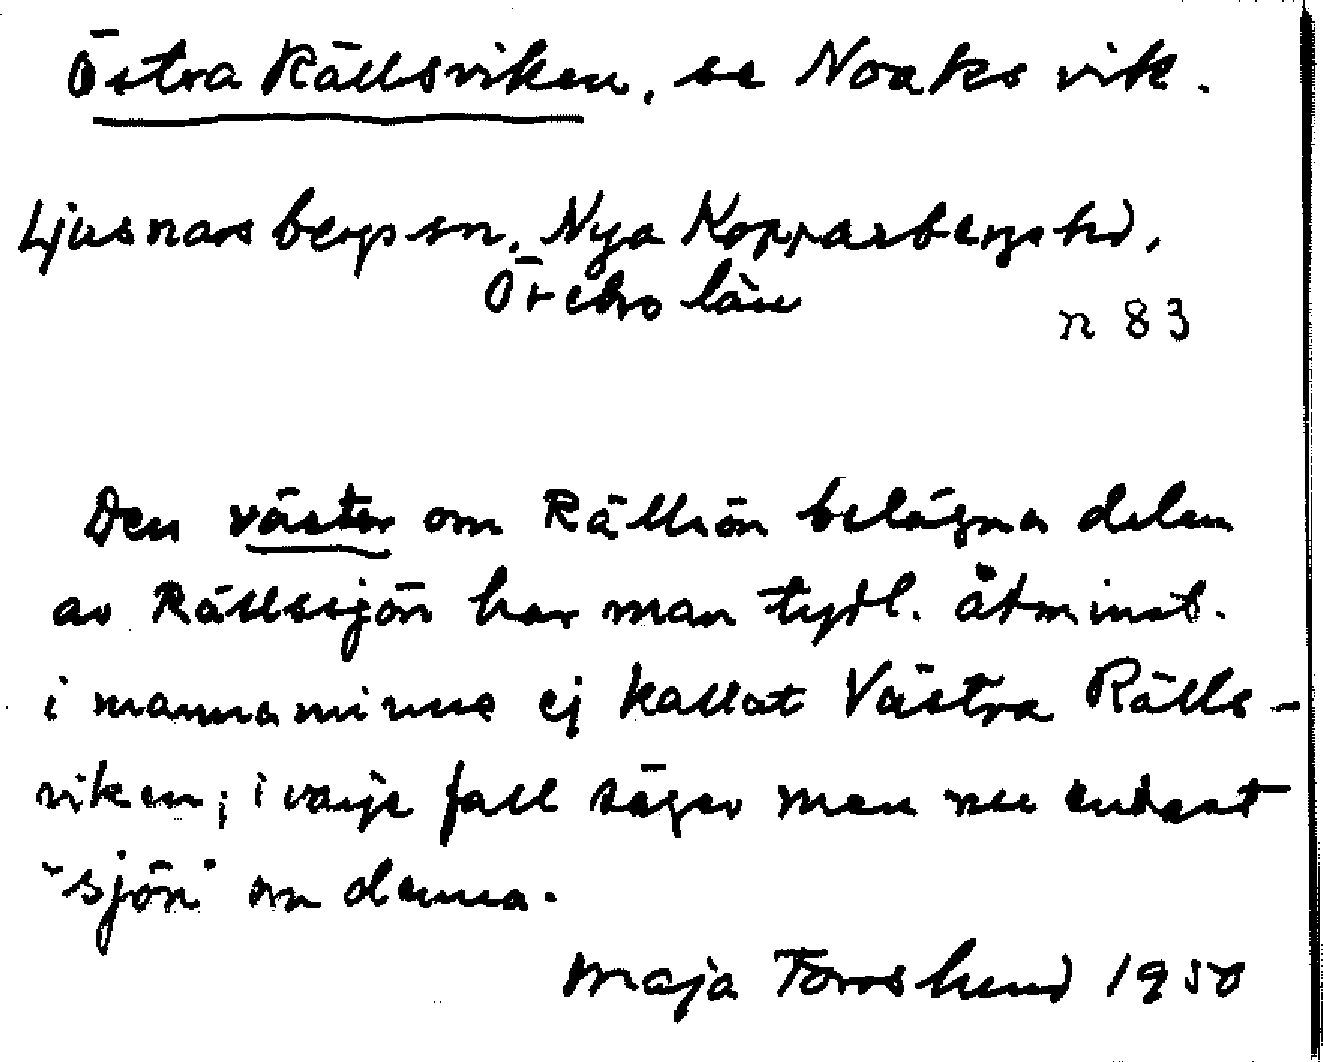 Östra Rällsviken, se Noaks vik.
Ljusnarsbergs sn, Nya Kopparbergs hd,
Örebro län
n 83
Den väster om Rällsön belägna delen
av Rällssjön har man tydl. åtminst.
i mannaminne ej kallat Västra Rälls-
viken; i varje fall säger man nu endast
"sjön" om denna.
Maja Toroslund 1950